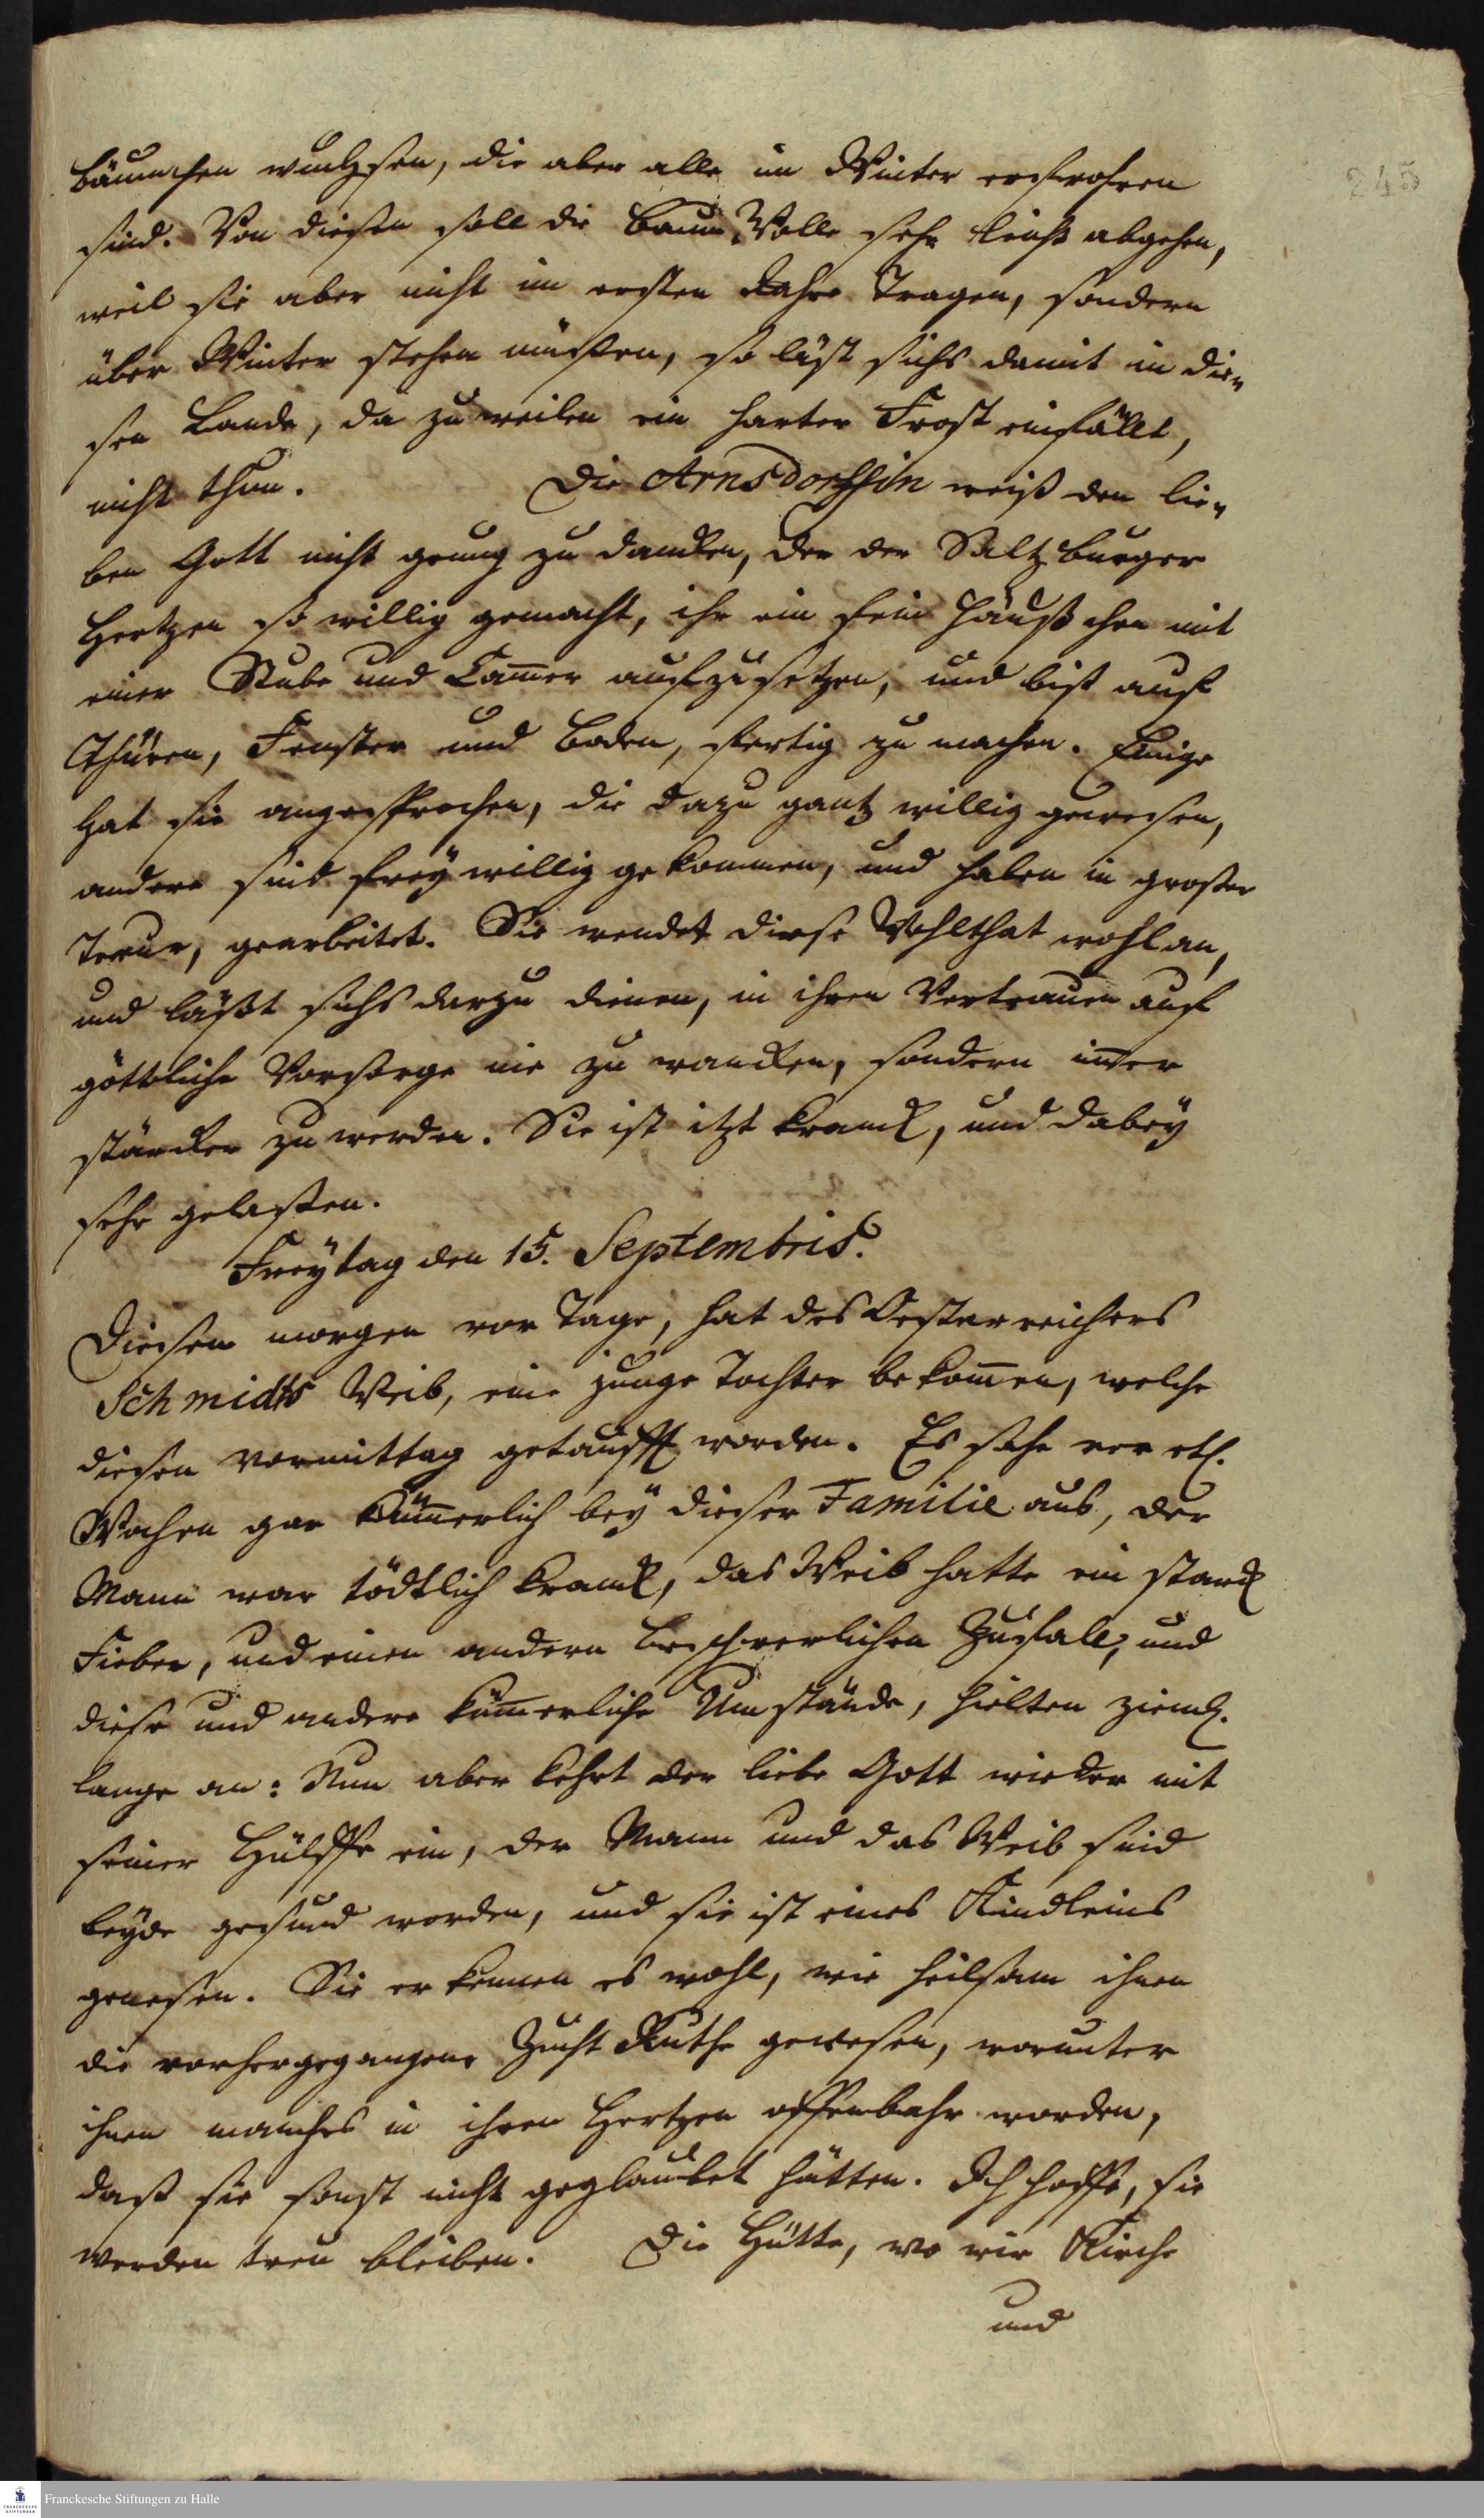 245
Bäumchen wuchsen, die aber alle im Winter erfrohren
sind. Von diesen soll die Baum Wolle sehr leicht abgehen,
weil sie aber nicht im ersten Jahre tragen, sondern
über Winter stehen müssen, so läst sichs damit in die„
sen Lande, da zuweilen ein harter Frost einfällt,
nicht thun. Die Arnsdorffin weiß den lie„
ben Gott nicht genug zu dancken, der der Saltzburger
Hertzen so willig gemacht, ihr ein fein Häußchen mit
einer Stube und Cam̅er aufzusetzen, und bist auf
Thüren, Fenster und Boden, fertig zu machen. Einige
hat sie angesprochen, die dazu gantz willig gewesen,
andere sind freywillig gekommen, und haben in großer
Treue, gearbeitet. Sie wendet diese Wohlthat wohl an,
und läßt sichs darzu dienen, in ihren Vertrauen auf
göttliche Vorsorge nie zu wancken, sondern im̅er
stärcker zu werden. Sie ist itzt kranck, und dabey
sehr gelaßen.
Freytag den 15. Septembris.
Diesen morgen vor Tage, hat des Oesterreichers
Schmidts Weib, eine junge Tochter bekom̅en, welche
diesen vormittag getaufft worden. Es sahe vor etl.
Wochen gar küm̅erlich bey dieser Familie aus, der
Mann war tödtlich kranck, das Weib hatte ein starck
Fieber, und einen andern beschwerlichen Zufall, und
diese und andere küm̅erliche Umstände, hielten zieml.
lange an: Nun aber kehrt der liebe Gott wieder mit
seiner Hülffe ein, der Mann und das Weib sind
beyde gesund worden, und sie ist eines Kindleins
genesen. Sie erkennen es wohl, wie heilsam ihnen
die vorhergegangene Zucht Ruthe gewesen, worunter
ihnen manches in ihren Hertzen offenbahr worden,
daß sie sonst nicht geglaubet hätten. Ich hoffe, sie
werden treu bleiben. Die Hütte, wo wir Kirche
und
Franckesche Stiftungen zu Halle
FRANCKESCHE STIFTUNGEN